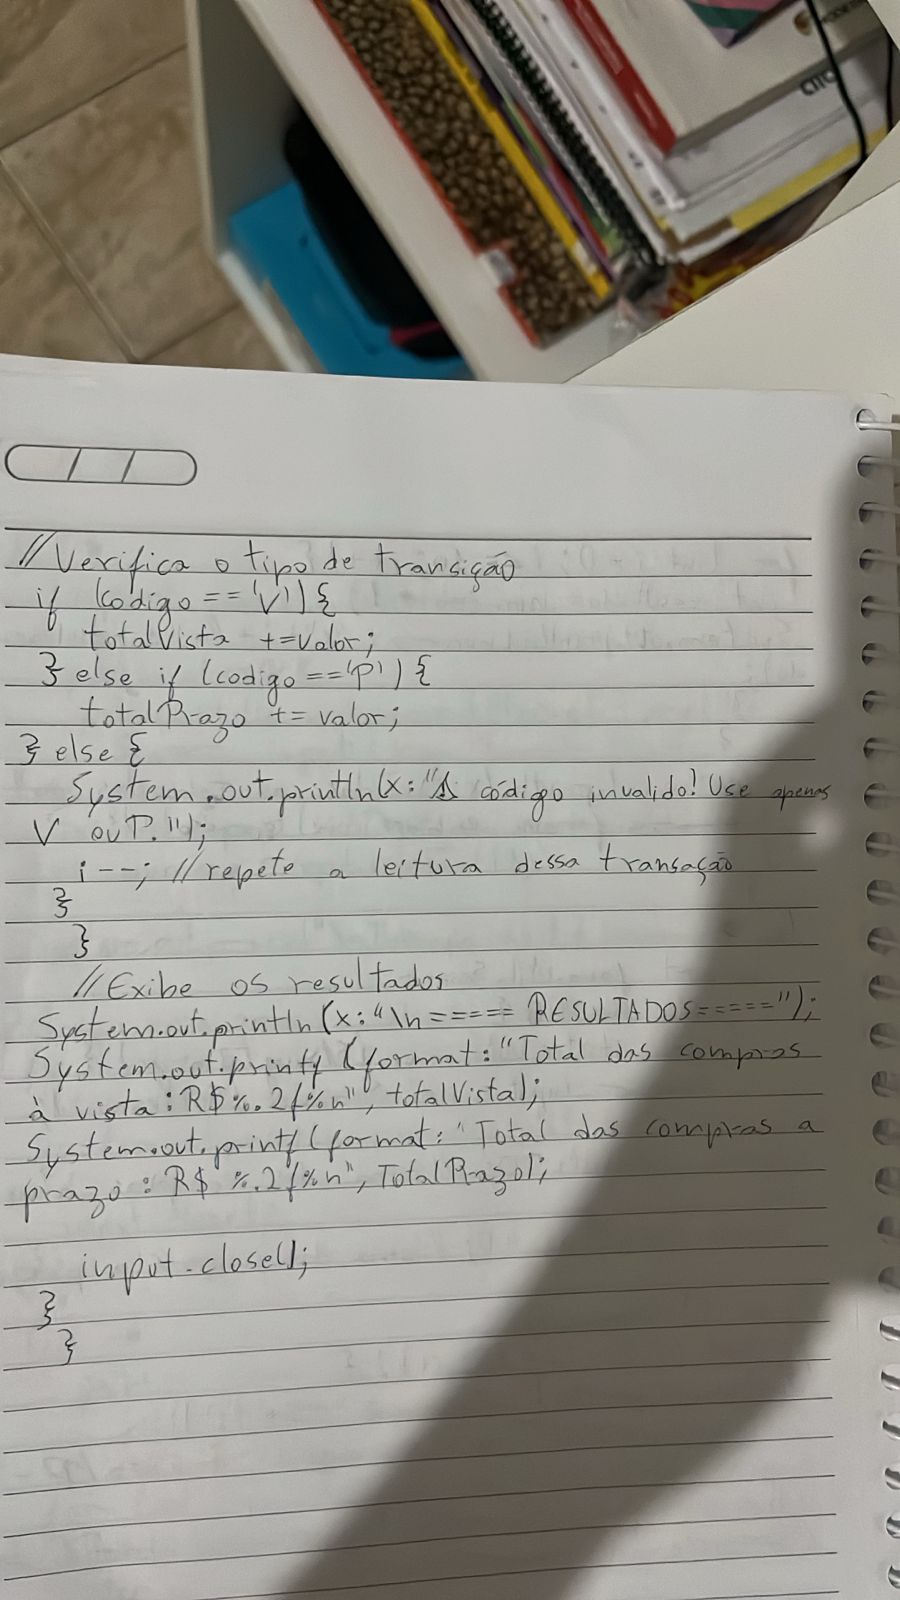 //Verifica o tipo de transição
if (codigo == 'V') {
totalVista += valor;
} else if (codigo == 'P') {
totalPrazo += valor;
} else {
System.out.println(x: "⚠ código invalido! Use apenas
V ou P.");
i--; //repete a leitura dessa transação
}
}
//Exibe os resultados
System.out.println(x: "\n===== RESULTADOS=====");
System.out.printf (format: "Total das compras
à vista: R$%.2f%n", totalVista);
System.out.printf (format: "Total das compras a
prazo: R$ %.2f%n", TotalPrazo);
input.close();
}
}